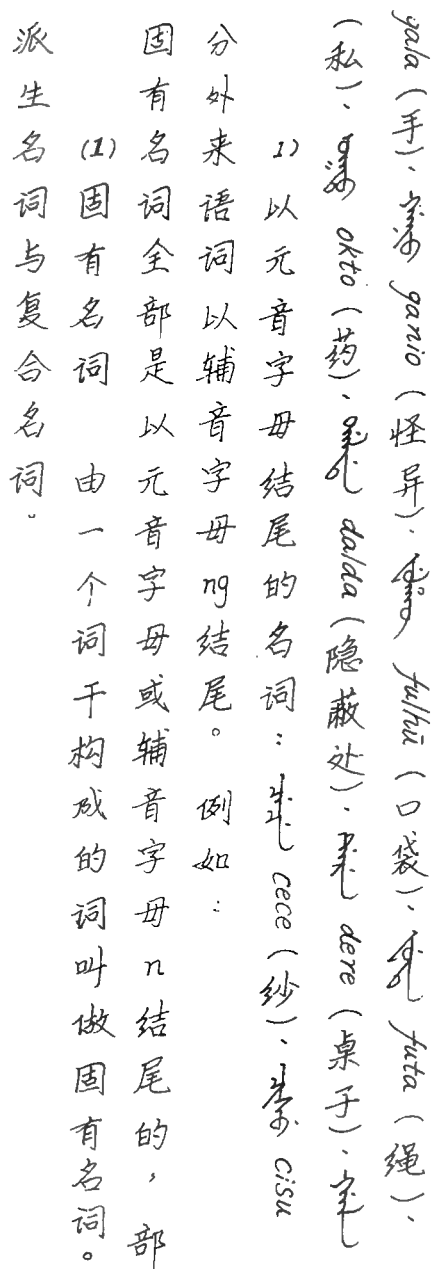 派生名词与复合名词。
(1)固有名词 由一个词干构成的词叫做固有名词。
固有名词全部是以元音字母或辅音字母n结尾的,部
分外来语词以辅音字母ng结尾。例如:
1)以元音字母结尾的名词:ᠴᡝᠴᡝ cece(纱)、ᠴᡳᠰᡠ cisu
(私)、ᠣᡴᡨᠣ okto(药)、ᡩᠠᠯᡩᠠ dalda(隐蔽处)、ᡩᡝᡵᡝ dere(桌子)、ᡤᠠᠯᠠ
gala(手)、ᡤᠠᠨᡳᠣ ganio(怪异)、ᡶᡠᠯᡥᡡ fulhū(口袋)、ᡶᡠᡨᠠ futa(绳)、